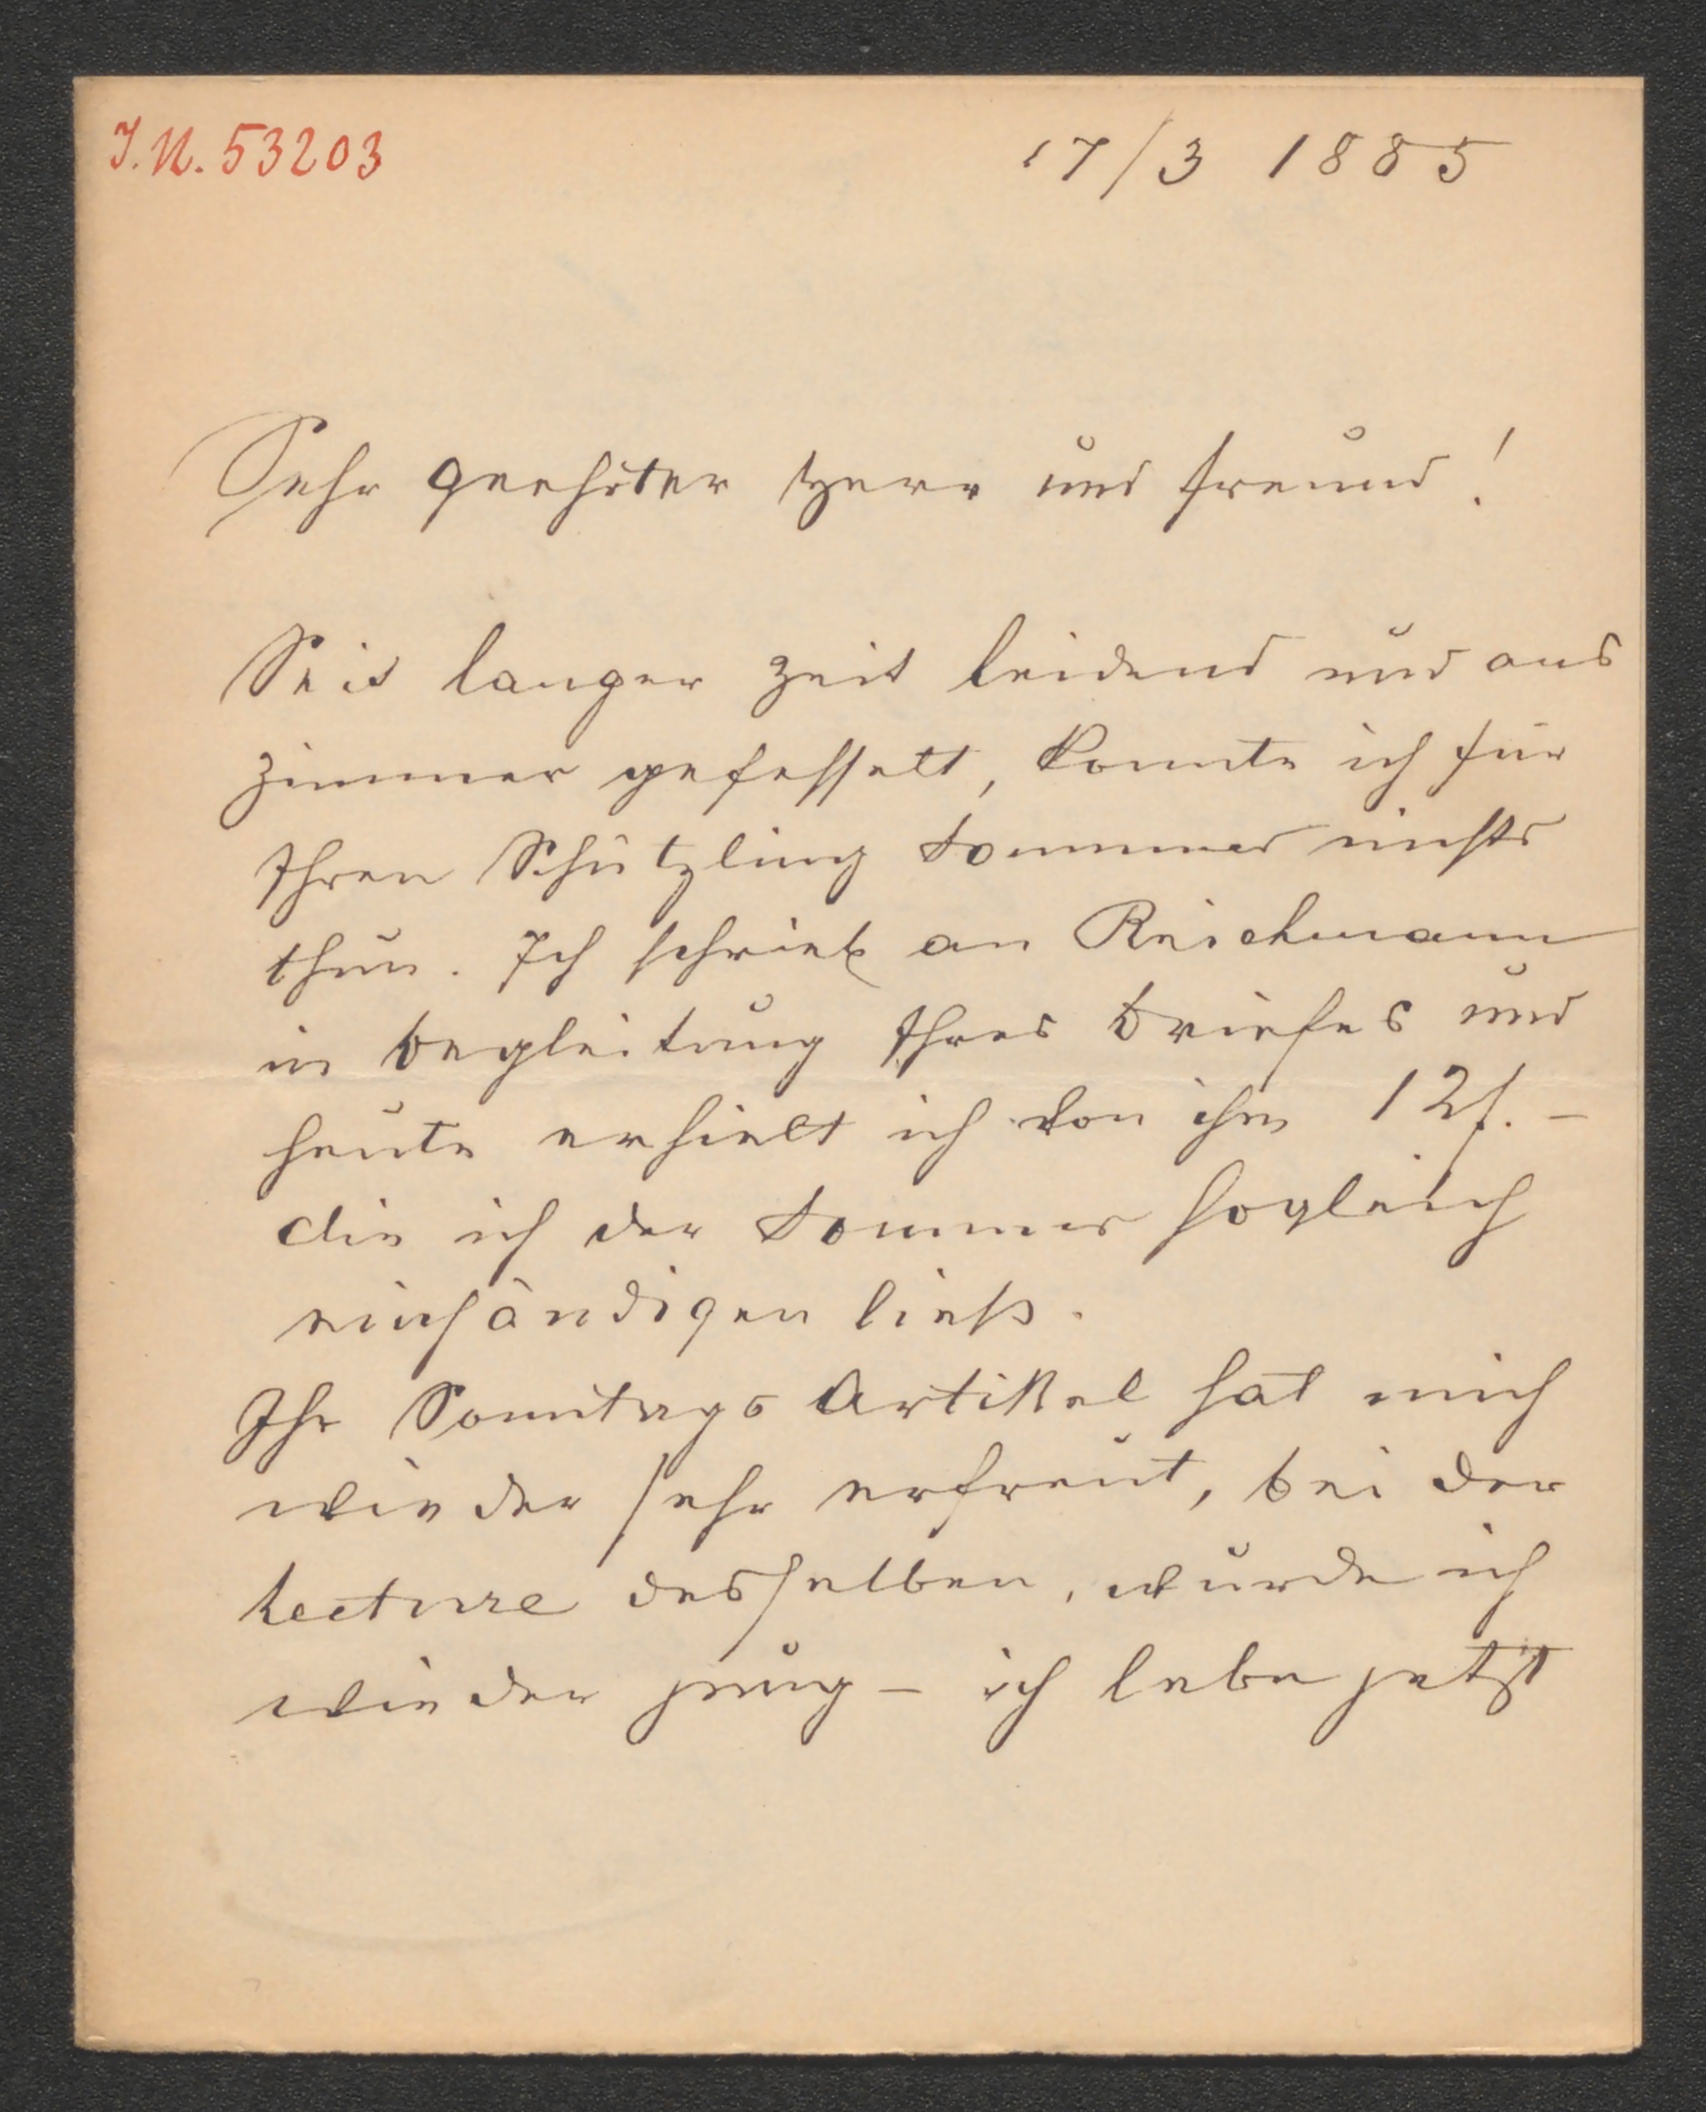 I.N. 53203
17/3 1885
Sehr geehrter Herr und Freund!
Seit langer Zeit leidend und ans
Zimmer gefesselt, konnte ich für
Ihren Schützling Sommer nichts
thun. Ich schrieb an Reichmann
in Begleitung Ihres Briefes und
heute erhielt ich von ihm 12f. –
die ich der Sommer sogleich
einhändigen ließ.
Ihr Sonntags Artikel hat mich
wieder sehr erfreut, bei der
Lecture desselben, wurde ich
wieder jung – ich lebe jetzt